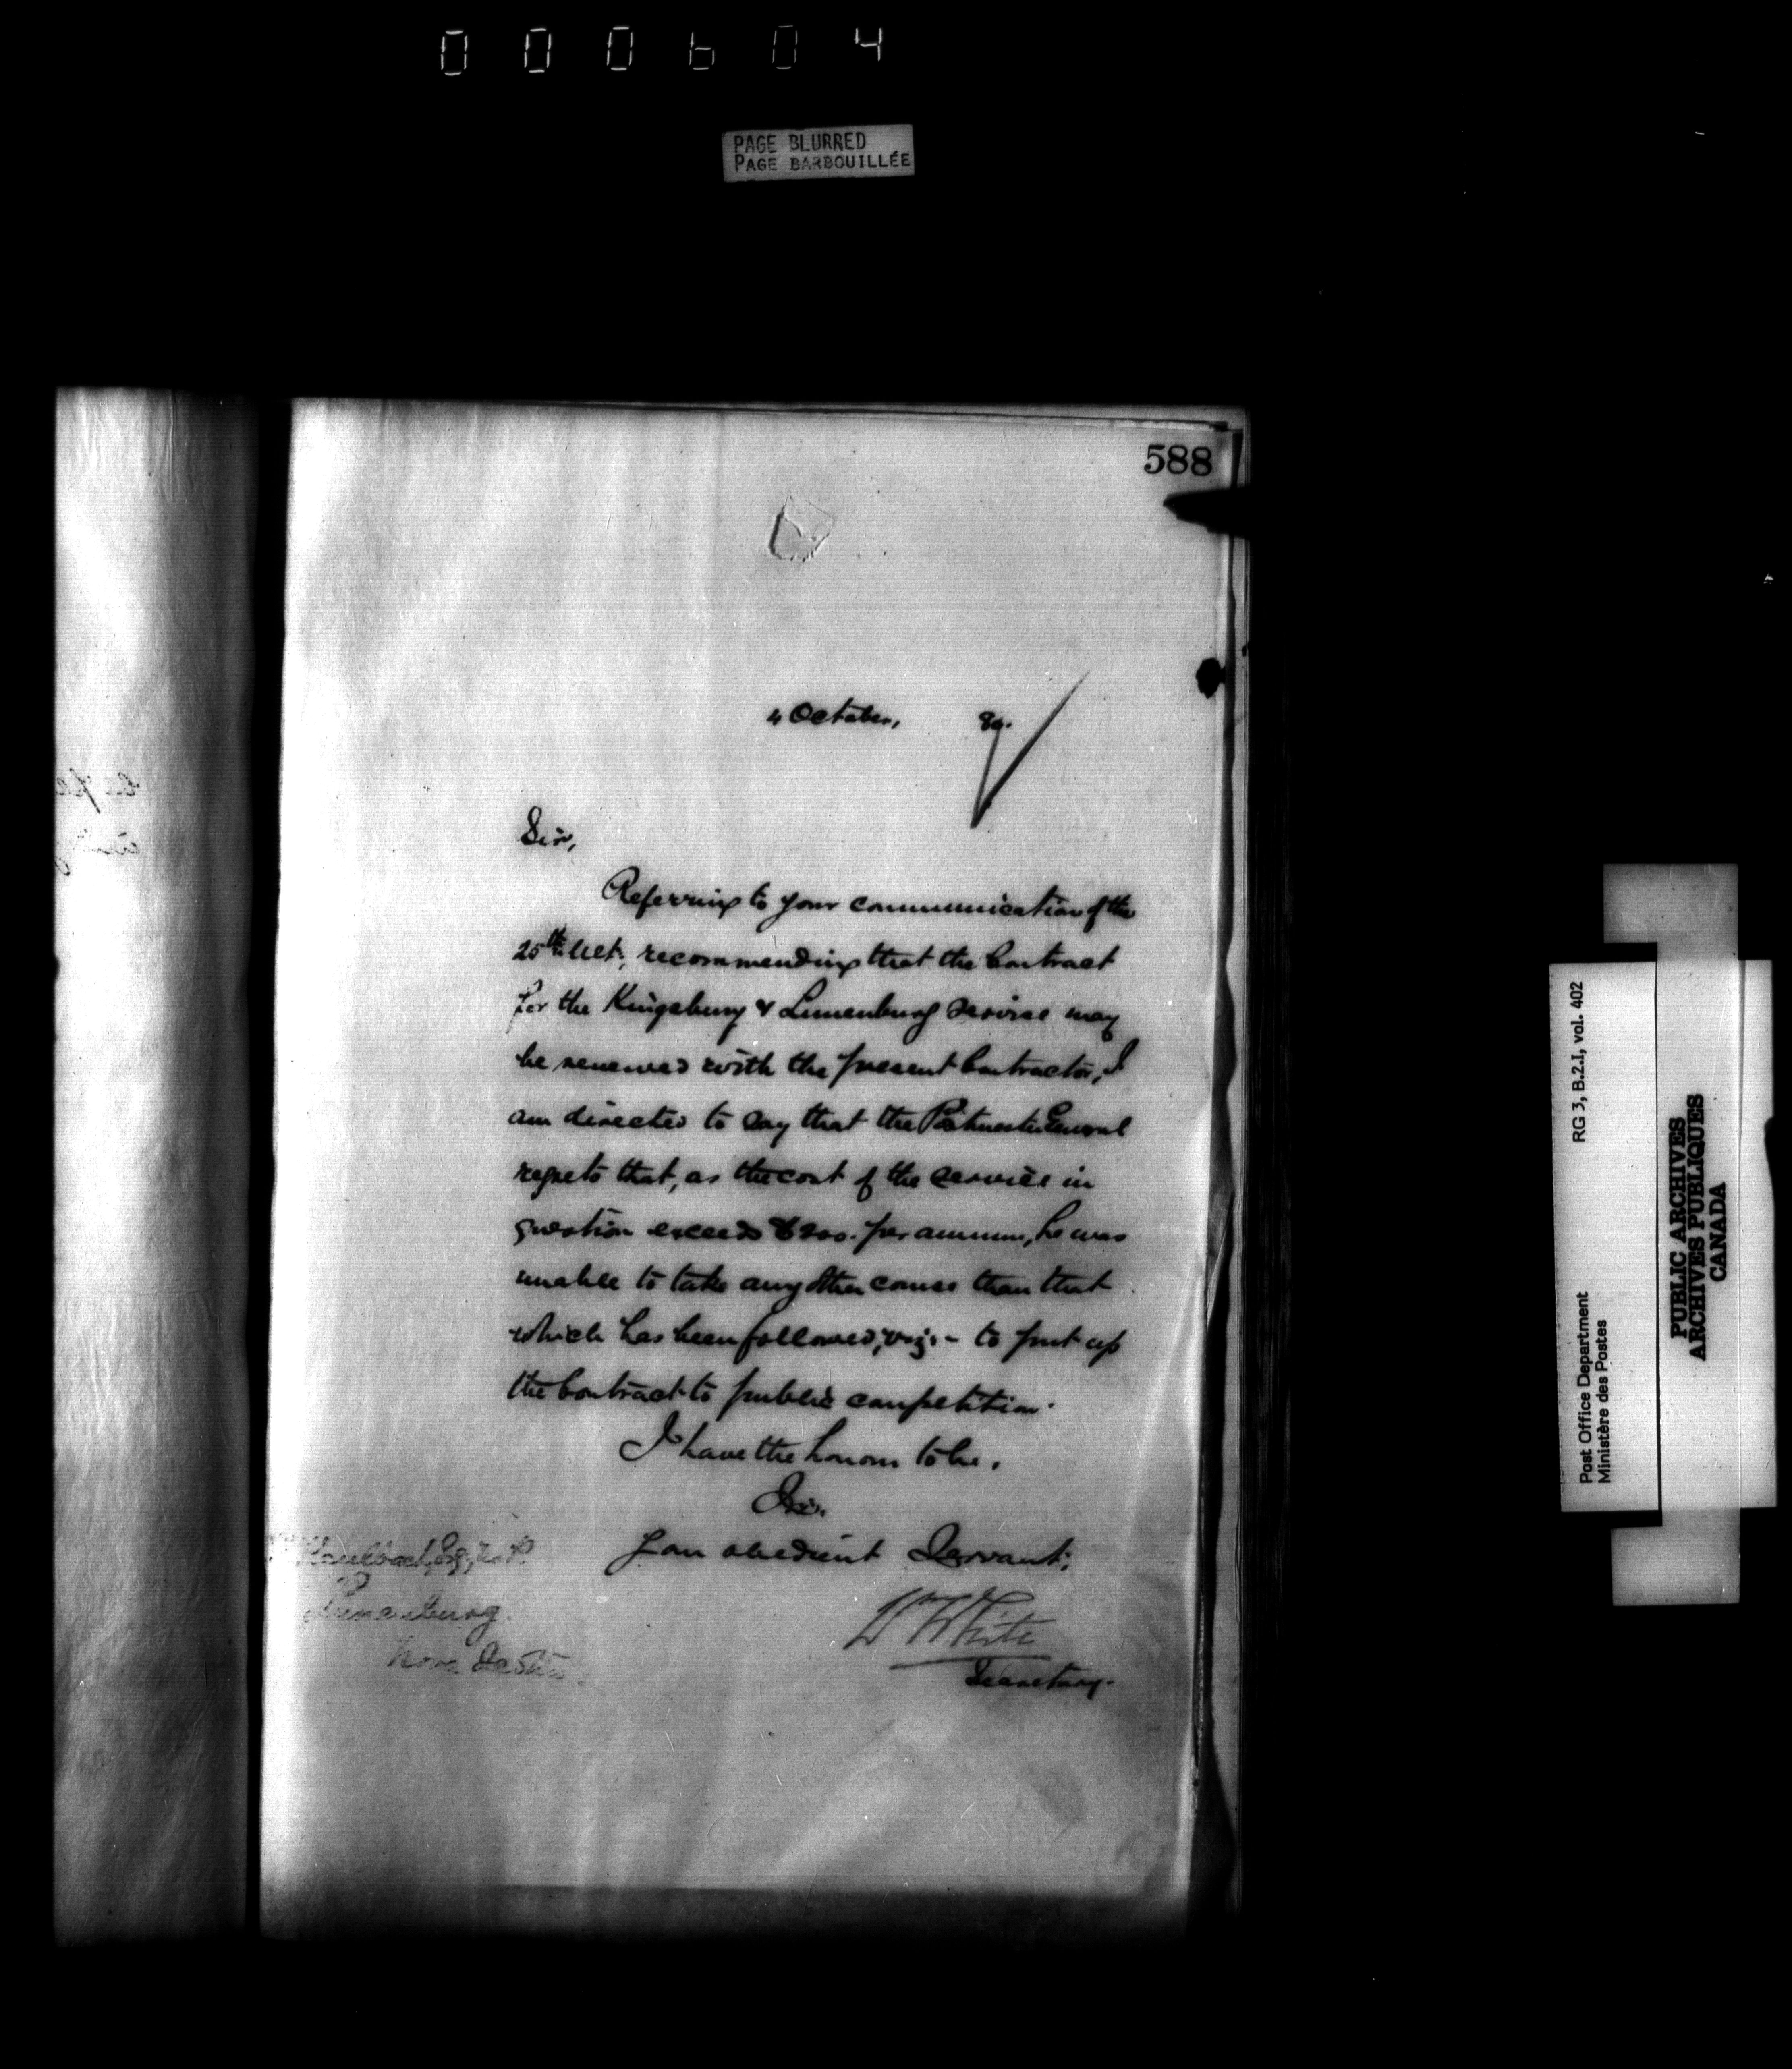 000604
PAGE BLURRED
PAGE BARBOUILLÉE
588
4 October, 89.
Sir,
Referring to your communication of the
25th Ult., recommending that the Contract
for the Kingsburg & Lunenburg Service may
be renewed with the present Contractor, I
am directed to say that the Postmaster General
regrets that, as the cost of the service in
question exceeds $200. per annum, he was
unable to take any other course than that
which has been followed, viz:- to put up
the Contract to public competition.
I have the honour to be,
Sir,
Your obedient Servant,
W White
Secretary.
Kaulbach, Esq., M.P.
Lunenburg.
Nova Scotia.
Post Office Department RG 3, B.2.I, vol. 402
Ministère des Postes
PUBLIC ARCHIVES
ARCHIVES PUBLIQUES
CANADA